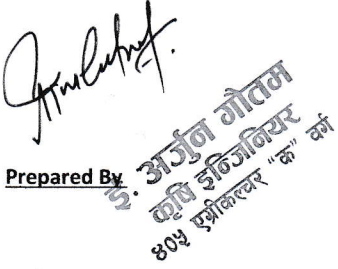 Prepared By
इ. अर्जुन गौतम
कृषि इन्जिनियर
४०५ एग्रीकल्चर "क" वर्ग